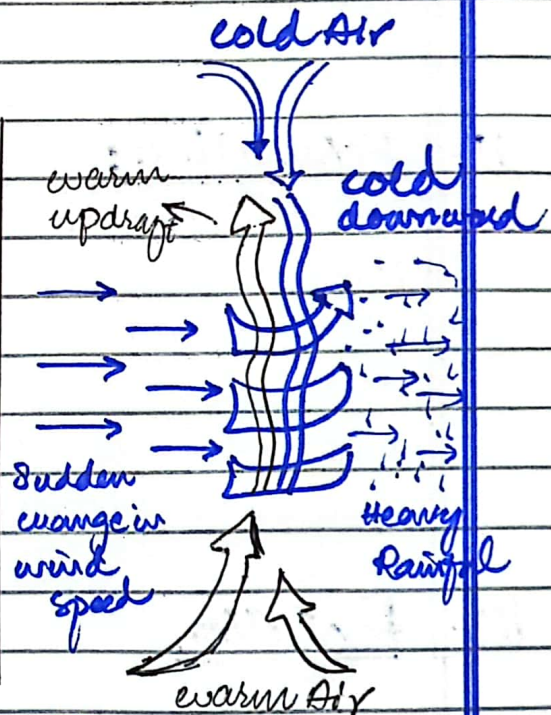 cold Air
warm
updraft
cold
downward
Sudden
change in
wind
speed
Heavy
Rainfal
warm Air